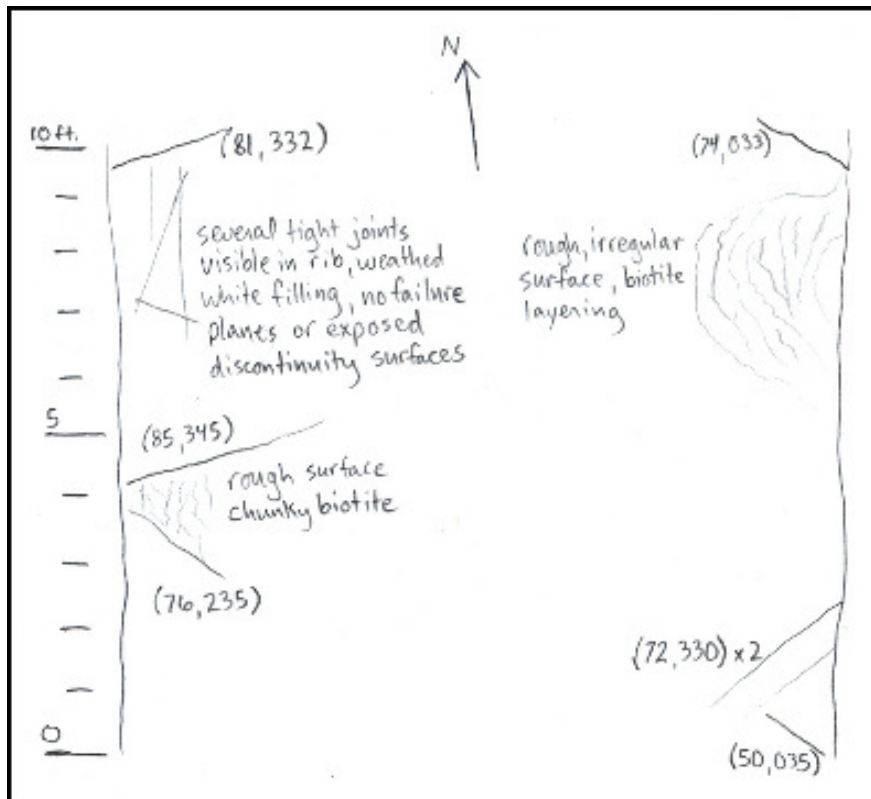 N
10 ft.
(81, 332)
(74, 033)
several tight joints
visible in rib, weathed
white filling, no failure
planes or exposed
discontinuity surfaces
rough, irregular
surface, biotite
layering
5
(85, 345)
rough surface
chunky biotite
(76, 235)
(72, 330) x 2
0
(50, 035)